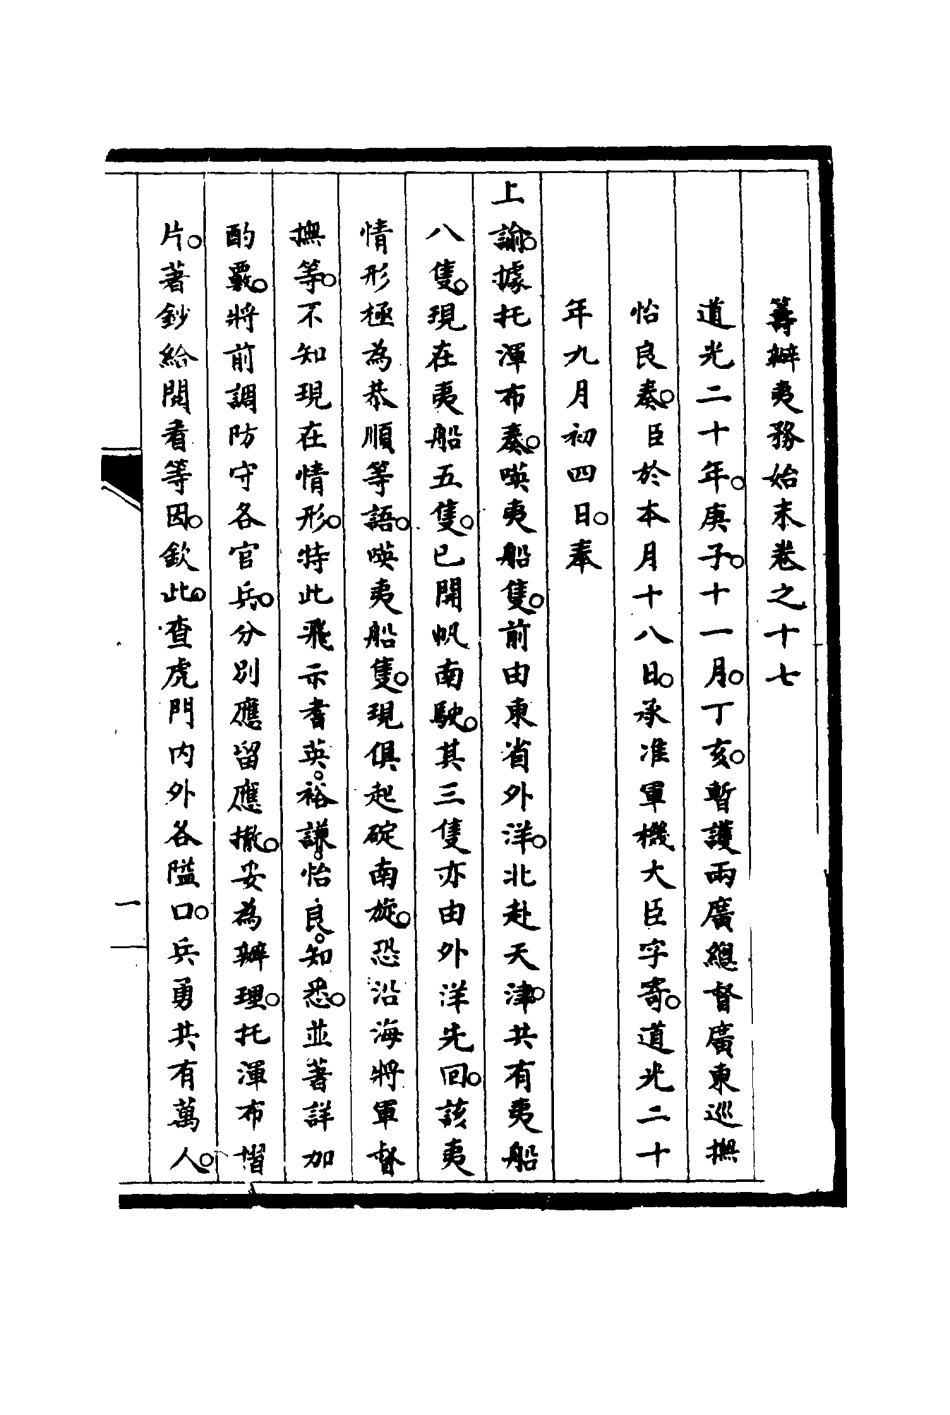 籌辦夷務始末卷之十七
道光二十年。庚子。十一月。丁亥。暫護兩廣總督廣東巡撫
怡良奏。臣於本月十八日。承准軍機大臣字寄。道光二十
年九月初四日。奉
上諭。據托渾布奏。𠸄夷船隻。前由東省外洋。北赴天津。共有夷船
八隻。現在夷船五隻。已開帆南駛。其三隻亦由外洋先回。該夷
情形極為恭順等語。𠸄夷船隻。現俱起碇南旋。恐沿海將軍督
撫等。不知現在情形。特此飛示耆英。裕謙。怡良。知悉。並著詳加
酌覈。將前調防守各官兵。分別應留應撤。妥為辦理。托渾布摺
片。著鈔給閱看等因。欽此。查虎門內外各隘口。兵勇共有萬人。
一